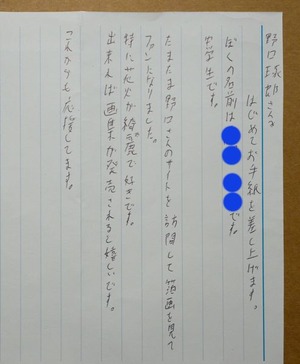 野口琢郎さんへ
はじめてお手紙を差し上げます。
ぼくの名前は です。
学生です。
たまたま野口さんのサイトを訪問して箔画を見て
ファンになりました。
特に花火が綺麗で好きです。
出来れば画集が発売されると嬉しいです。
これからも応援してます。